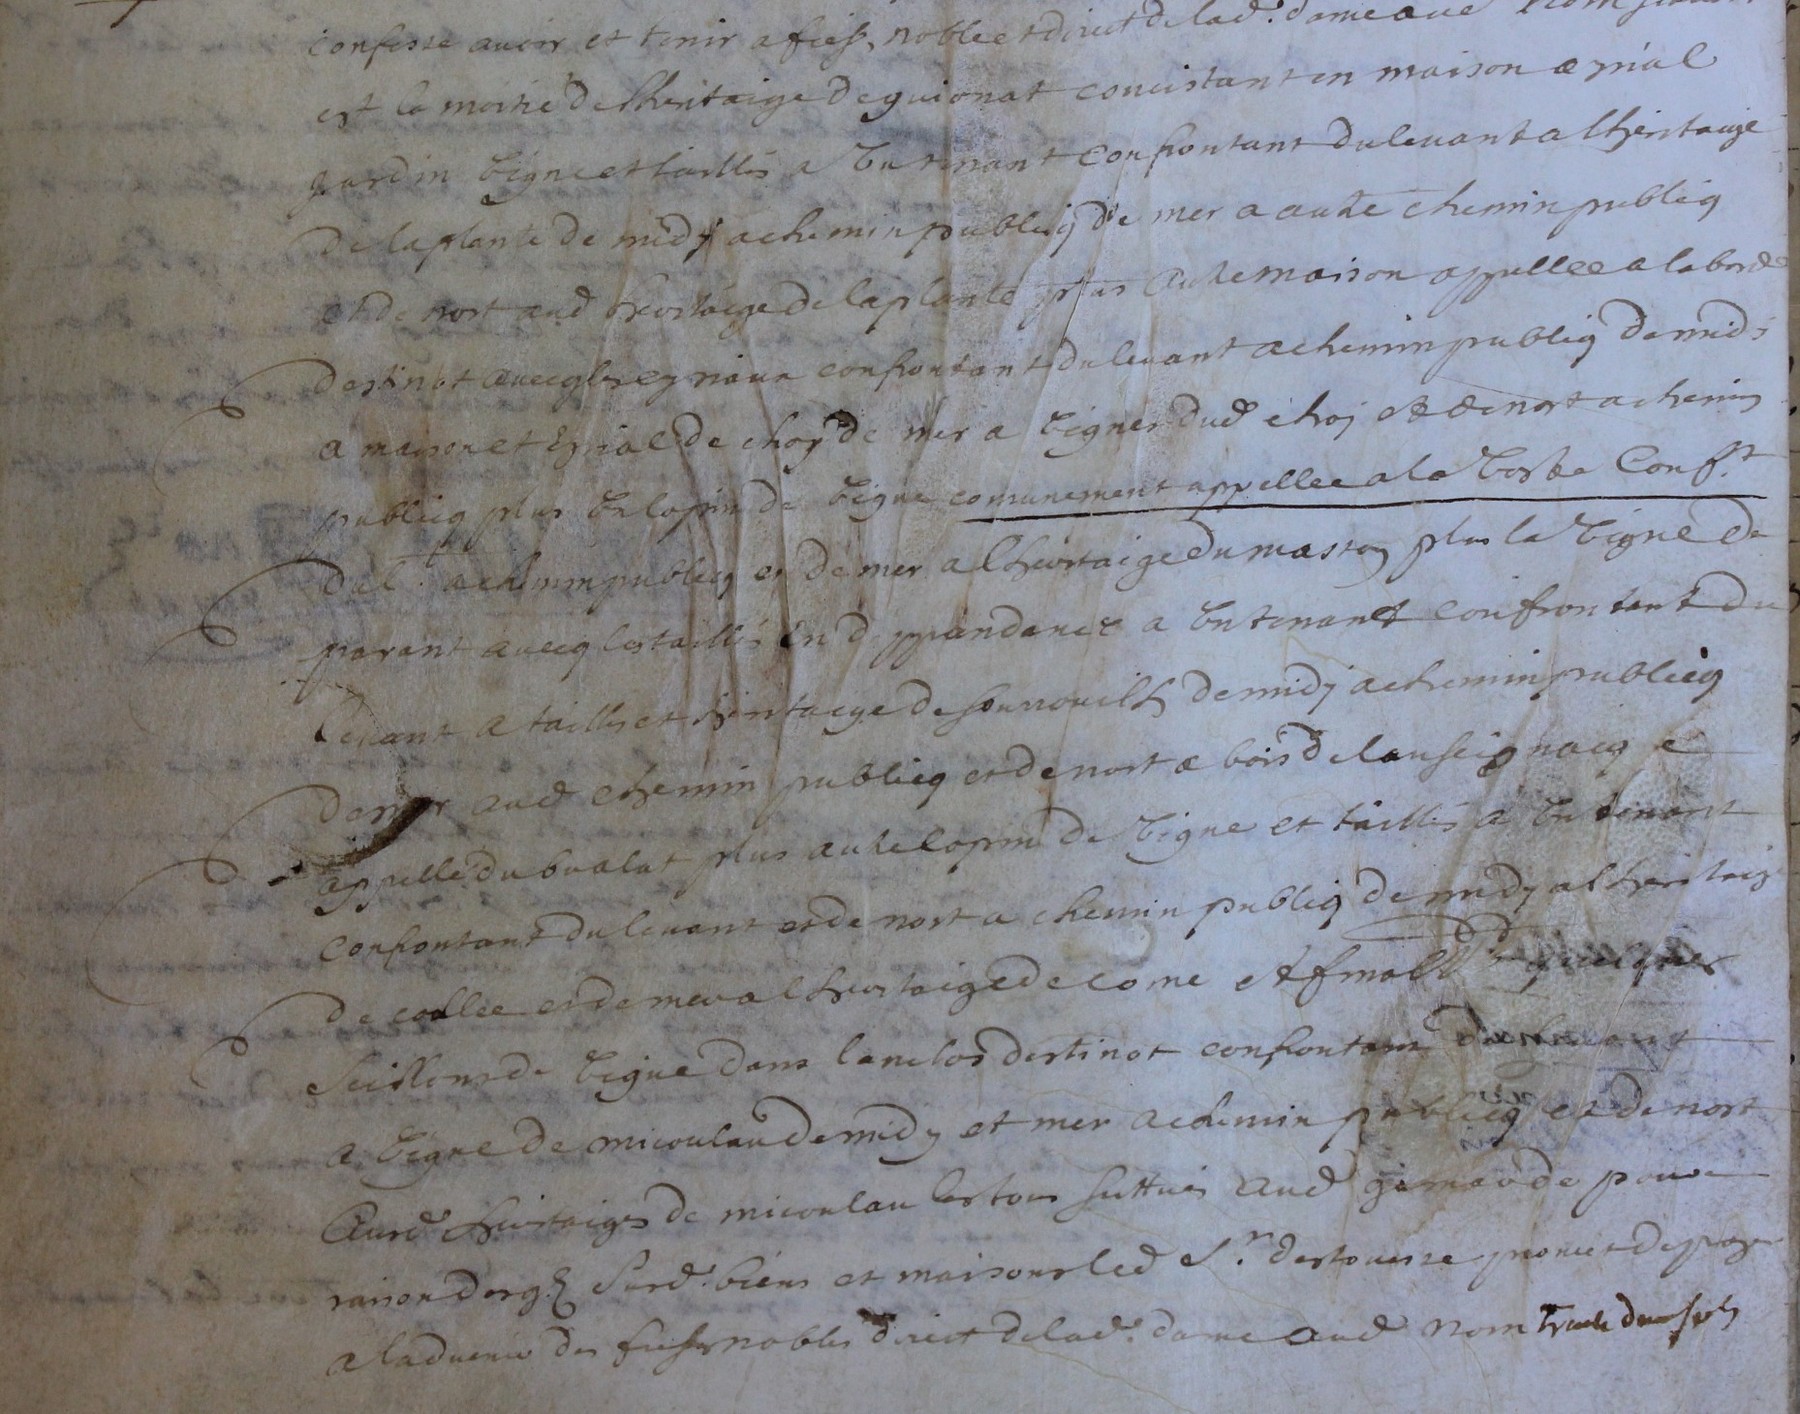 confesse avoir et tenir a fief, noble et direct de lad. dame aud nom
est la moitie de lheritaige de guionat concistant en maison ayrial
jardin vigne et taillis a un tenant confrontant du levant a lheritaige
de laplante de midy a chemin publicq de mer a autre chemin publicq
et de nort aud heritaige de laplante plus autre maison appellee a laborde
destinot avecq les eyriaux confrontant du levant a chemin publicq de midi
a maison et eyrial de choy de mer a vignes dud choy et de nort a chemin
publicq plus un lopin de vigne comunement appellee a la Coste Conf.t
del.t a chemin publicq et de mer a lheritaige du masson plus la vigne de
parant avecq les taillis en deppandance a un tenant confrontant du
levant a taillis et heritaige de de midy a chemin publicq
de mer aud chemin publicq et de nort a bois de
appelle du bualat plus autre lopin de vigne et taillis a un tenant
confrontant du levant et de nort a chemin publicq de midy a lheritaige
de collee et de mer a lheritaige de come et quelques
seillons de vigne dans lenclos destinot confrontant du levant
a vigne de micoulau de midy et mer a chemin publicq et de nort
aud heritaiges de micoulau les tous scittues aud pour
raison desq. surd. biens et maisons led S.r destouesse promet de payer
a ladvenir des fiefs nobles direct de lad. dame aud nom